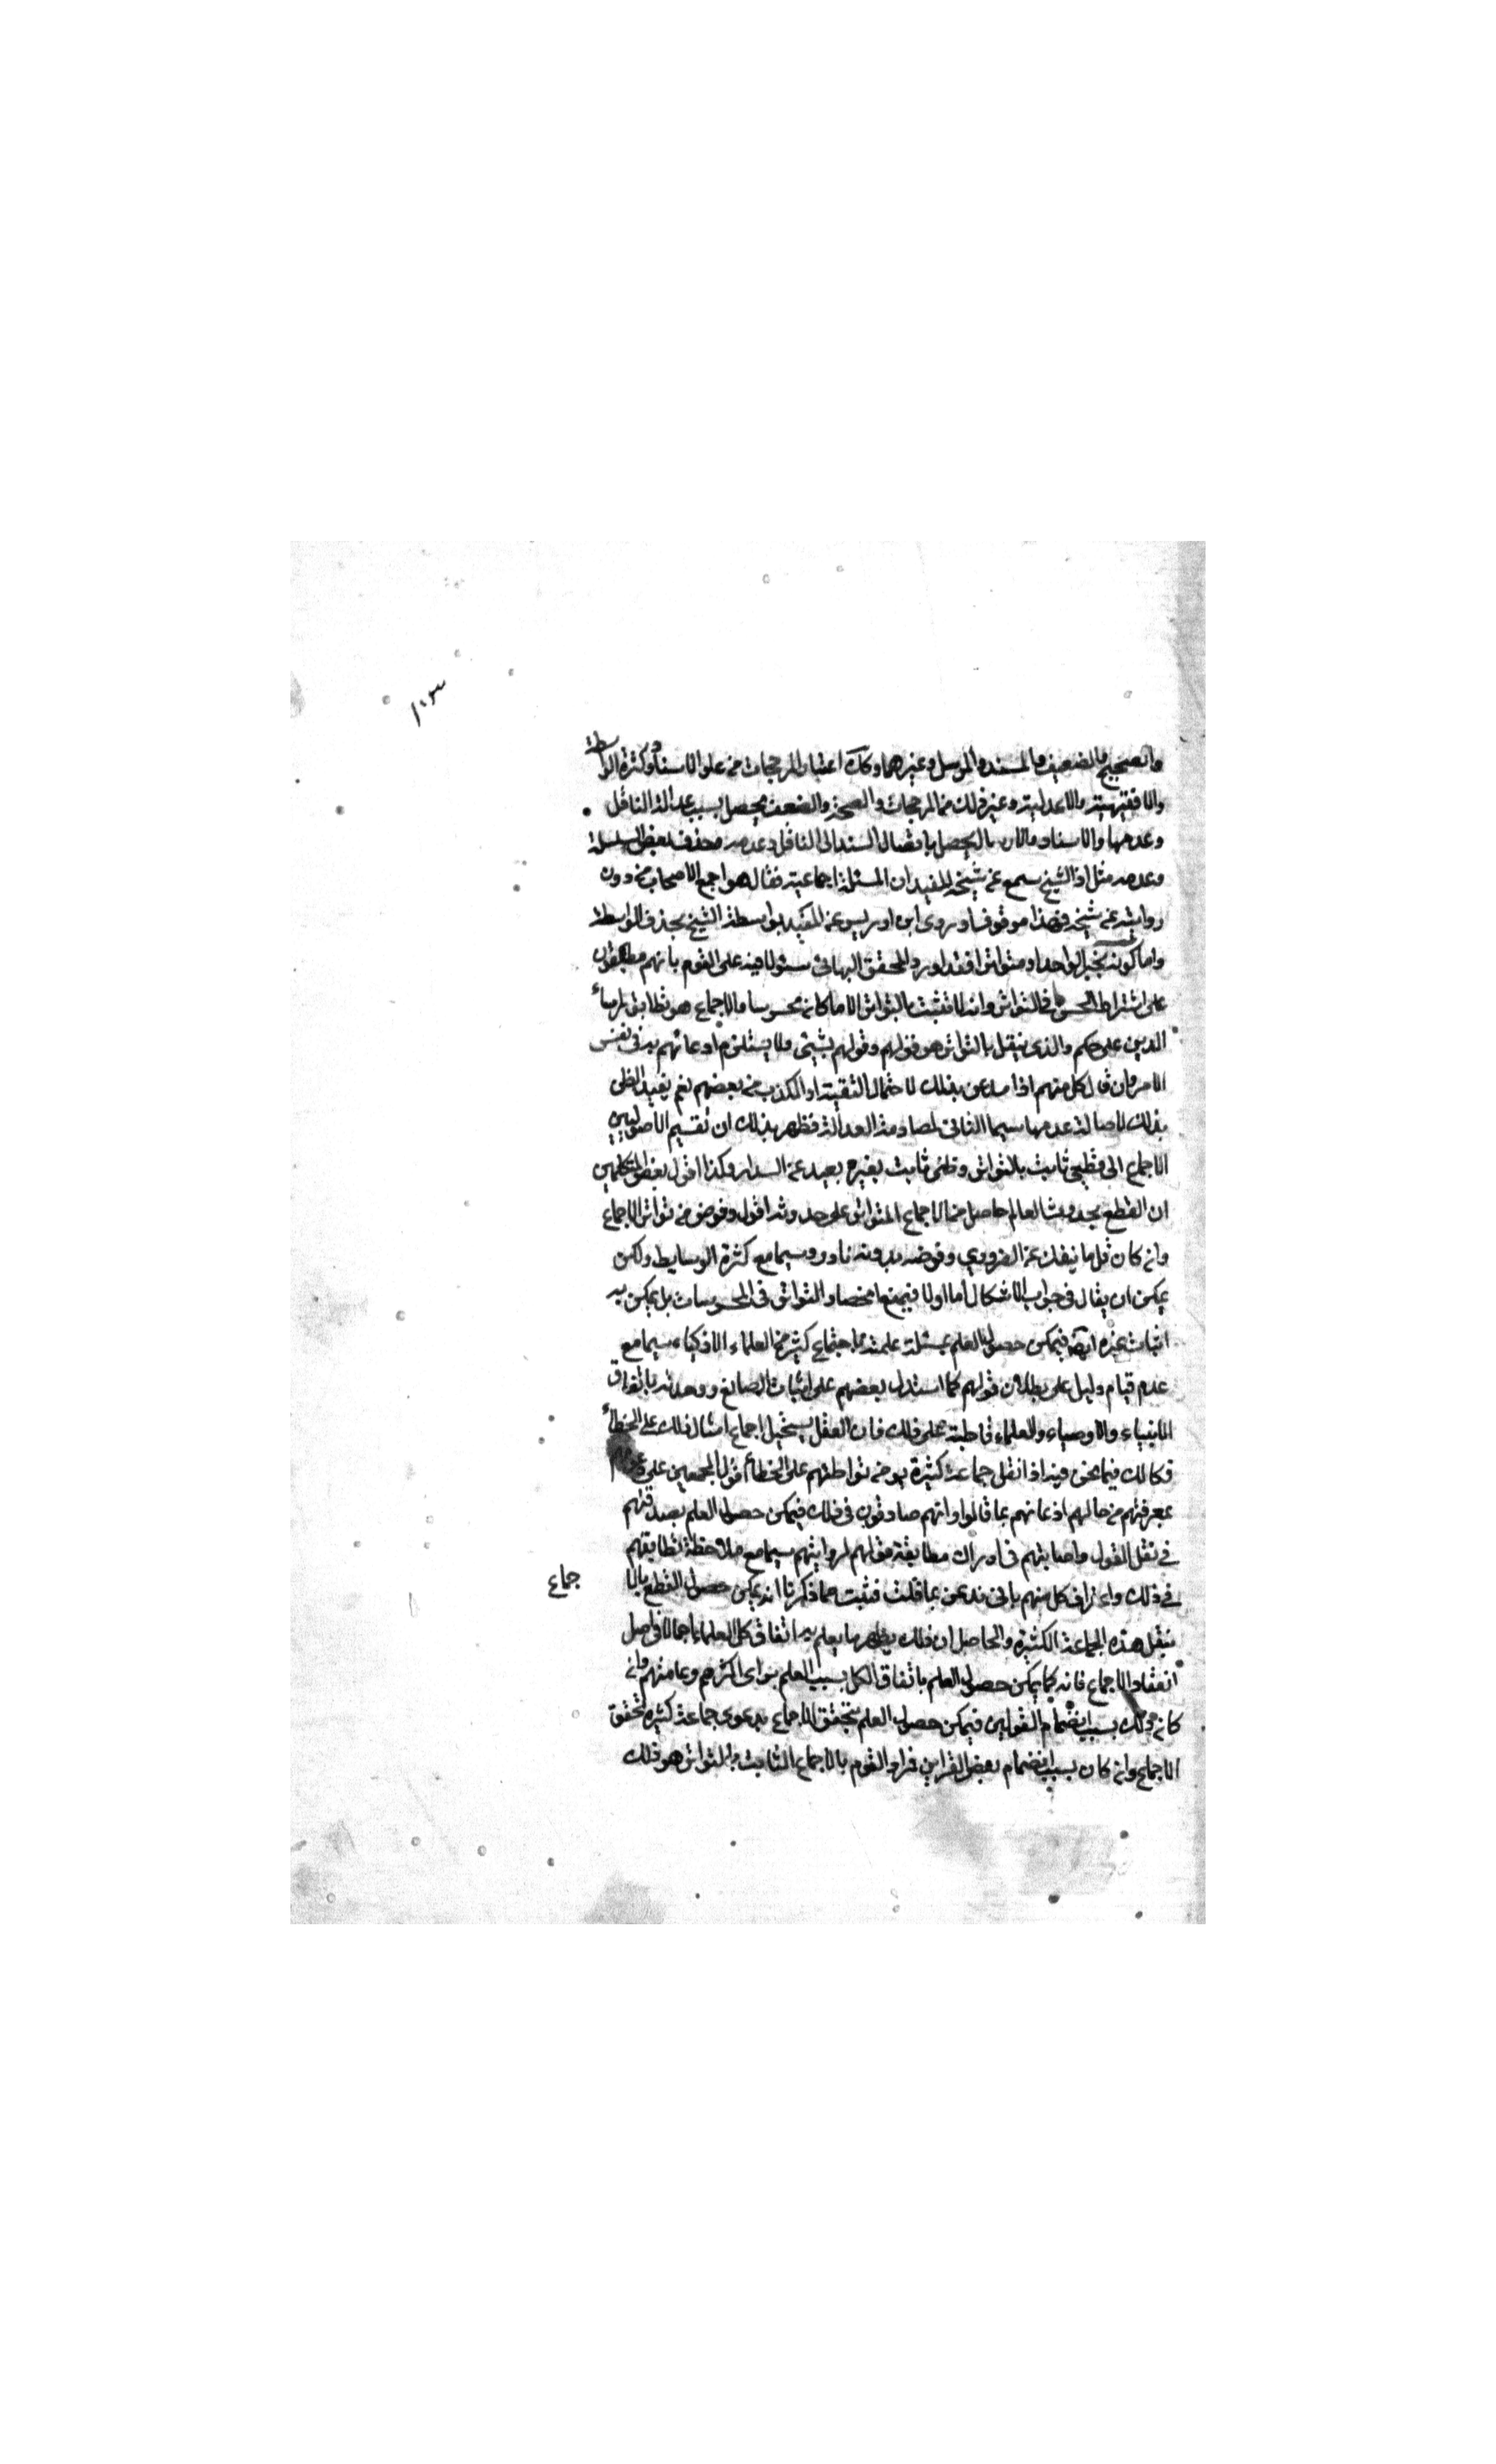 ١٠٣
والصحيح والضعيف والمسند والمرسل وغيرهما وكذا اعتبار المرجحات من علو الاسناد وكثرة الواسطة
والافقهية والاعدلية وغير ذلك من المرجحات والصحة والضعف يحصل بسبب عدالة الناقل
وعدمها والاسناد والارسال يحصل باتصال السند الى الناقل وعدمه وحذف بعض السلسلة
وعدمه مثل اذا الشيخ سمع عن شيخه المفيد ان المسئلة اجماعية فقال هو اجمع الاصحاب من دون
روايته عن شيخه فهذا موقوف او روى ابن ادريس عن المفيد بواسطة الشيخ بحذف الواسطة
واما كونه كخبر الواحد او متواترا فقد اورد المحقق البهائى سئوالا فيه على القوم بانهم مطبقون
على اشتراط الحس في التواتر وانه لا تثبت بالتواتر الا ما كان محسوسا والاجماع هو تطابق اراء
الدين على حكم والذى ينقل بالتواتر هو قولهم وقولهم بشيئ لا يستلزم اذعانهم به في نفس
الامر وان قال كل منهم انا مذعن بذلك لاحتمال التقية او الكذب من بعضهم نعم يفيد الظن
بذلك لاصالة عدمها سيما الثانى لمصادمة العدالة فظهر بذلك ان تقسيم الاصوليين
الاجماع الى قطعي ثابت بالتواتر وظنى ثابت بغيره بعيد عن السداد وكذا قول بعض المتكلمين
ان القطع بحدوث العالم حاصل من الاجماع المتواتر على حدوثه اقول وفرض من تواتر الاجماع
وان كان قل ما ينفك عن الضروري وفرضه بدونه نادر وسيما مع كثرة الوسايط ولكن
يمكن ان يقال في جواب الاشكال اما اولا فبمنع انحصار التواتر في المحسوسات بل يمكن به
اثبات غيره ايضا فيمكن حصول العلم بمسئلة علمية باجتماع كثير من العلماء الاذكياء سيما مع
عدم قيام دليل على بطلان قولهم كما استدل بعضهم على اثبات الصانع ووحدته باتفاق
الانبياء والاوصياء والعلماء قاطبة على ذلك فان العقل يستحيل اجماع امثال ذلك على الخطأ
فكذلك فيما نحن فيه اذا نقل جماعة كثيرة يؤمن تواطئهم على الخطأ قول المجمعين على
بمعرفتهم من حالهم اذعانهم بما قالوا وانهم صادقون في ذلك فيمكن حصول العلم بصدقهم
في نقل القول واصابتهم في ادراك مطابقة قولهم لروايتهم سيما مع ملاحظة تطابقهم
في ذلك واعتراف كل منهم بانى مذعن بما قلت فثبت مما ذكرنا انه يمكن حصول القطع بالا
جماع
بنقل هذه الجماعة الكثيرة والحاصل ان ذلك يظهر ما يعلم به اتفاق كل العلماء اجمالا في اصل
انعقاد الاجماع فانه كما يمكن حصول العلم باتفاق الكل بسبب العلم براى اكثرهم وعامتهم وان
كان ذلك بسبب انضمام القراين فيمكن حصول العلم بتحقق الاجماع بدعوى جماعة كثيرة تحقق
الاجماع وان كان بسبب انضمام بعض القراين فمراد القوم بالاجماع الثابت بالتواتر هو ذلك